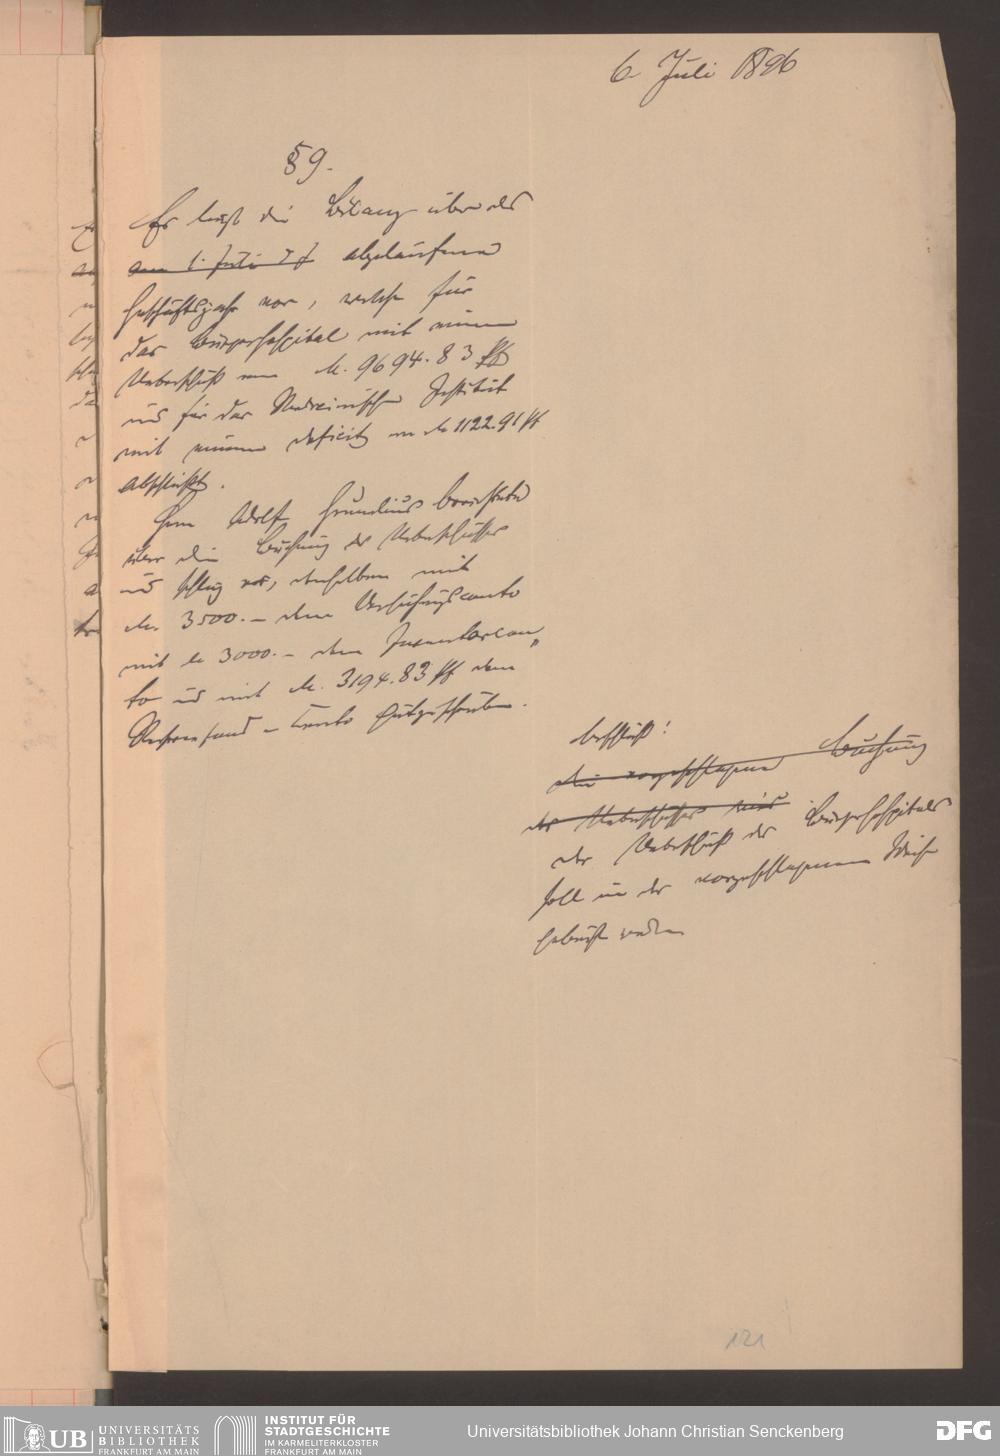 6. Juli 1896
§ 9.
Es liegt die Bilanz über das
am 1. Juli d J. abgelaufene
Geschäftsjahr vor, welche für
das Bürgerhospital mit einem
Ueberschuß von M. 9694.83 Pf
und für das Medicinische Institut
mit einem deficit von M 1122.91 Pf
abschließt.
Herr Adolf Grunelius berichtete
über die Buchung des Ueberschusses
und schlug vor, denselben mit
M. 3500.– dem conto
mit M 3000.– dem Inventarcon„
to und mit M. 3194.83 Pf dem
Reservefond – Conto gutzuschreiben.
Beschluß!
die vorgeschlagene Buchung
des Ueberschusses wird
der Ueberschuß des Bürgerhospitals
soll in der vorgeschlagenen Weise
gebucht werden
121
UB UNIVERSITÄTS
BIBLIOTHEK
FRANKFURT AM MAIN
INSTITUT FÜR
STADTGESCHICHTE
IM KARMELITERKLOSTER
FRANKFURT AM MAIN
Universitätsbibliothek Johann Christian Senckenberg
DFG